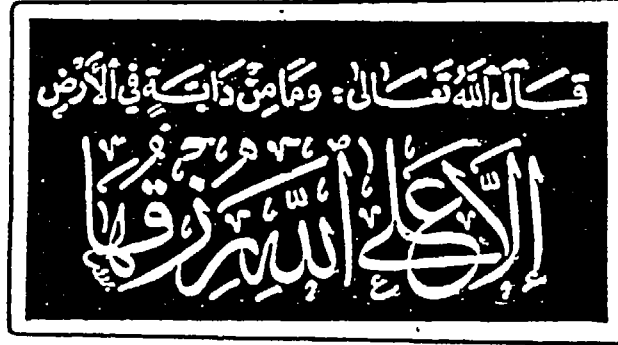 قَالَ ٱللّٰهُ تَعَالىٰ: وَمَا مِنْ دَابَّةٍ فِي ٱلْأَرْضِ
إِلَّا عَلَى ٱللّٰهِ رِزْقُهَا